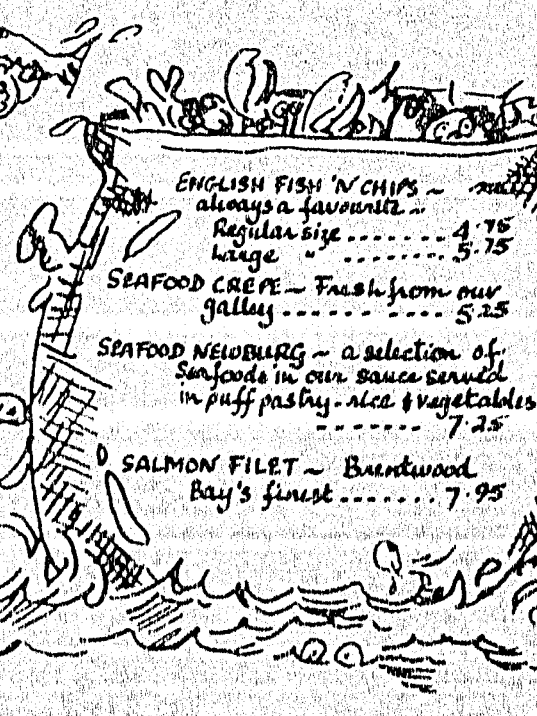 ENGLISH FISH 'N' CHIPS ~
always a favourite ..
Regular size ........ 4.75
Large " ........ 5.75
SEAFOOD CREPE ~ Fresh from our
galley ............ 5.25
SEAFOOD NEWBURG ~ a selection of
Seafoods in our sauce served
in puff pastry - rice & vegetables
....... 7.25
SALMON FILET ~ Brentwood
Bay's finest ....... 7.95